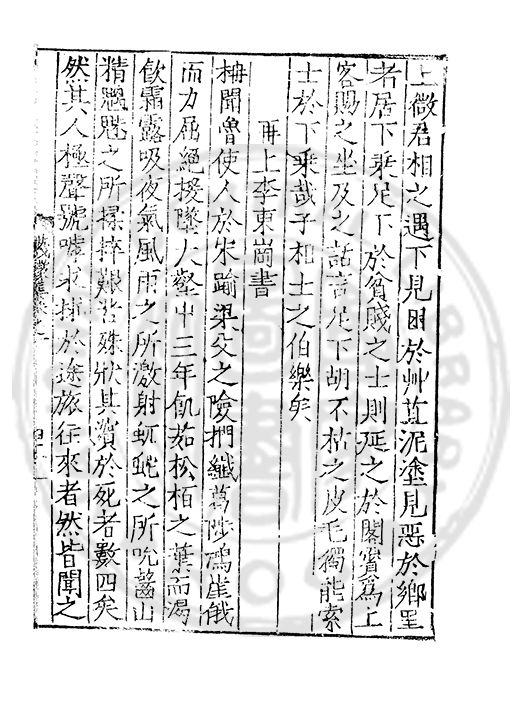 上微君相之遇下見困於艸苴泥塗見惡於鄉里
者居下乘足下於貧賤之士則延之於閣賓爲上
客賜之坐及之話言足下胡不枯之皮毛獨能索
士於下乘哉子相士之伯樂矣
再上李東崗書
枏聞魯使人於宋踰梁父之險捫纖葛陟鴻崖俄
而力屈絕援墜大壑中三年飢茹松栢之葉而渴
飲霜露吸夜氣風雨之所激射虺之所吮齧山
精魍魅之所揉捽艱苦殊狀其賓於死者數四矣
然其人極聲號嘑求捄於途旅往來者然皆聞之